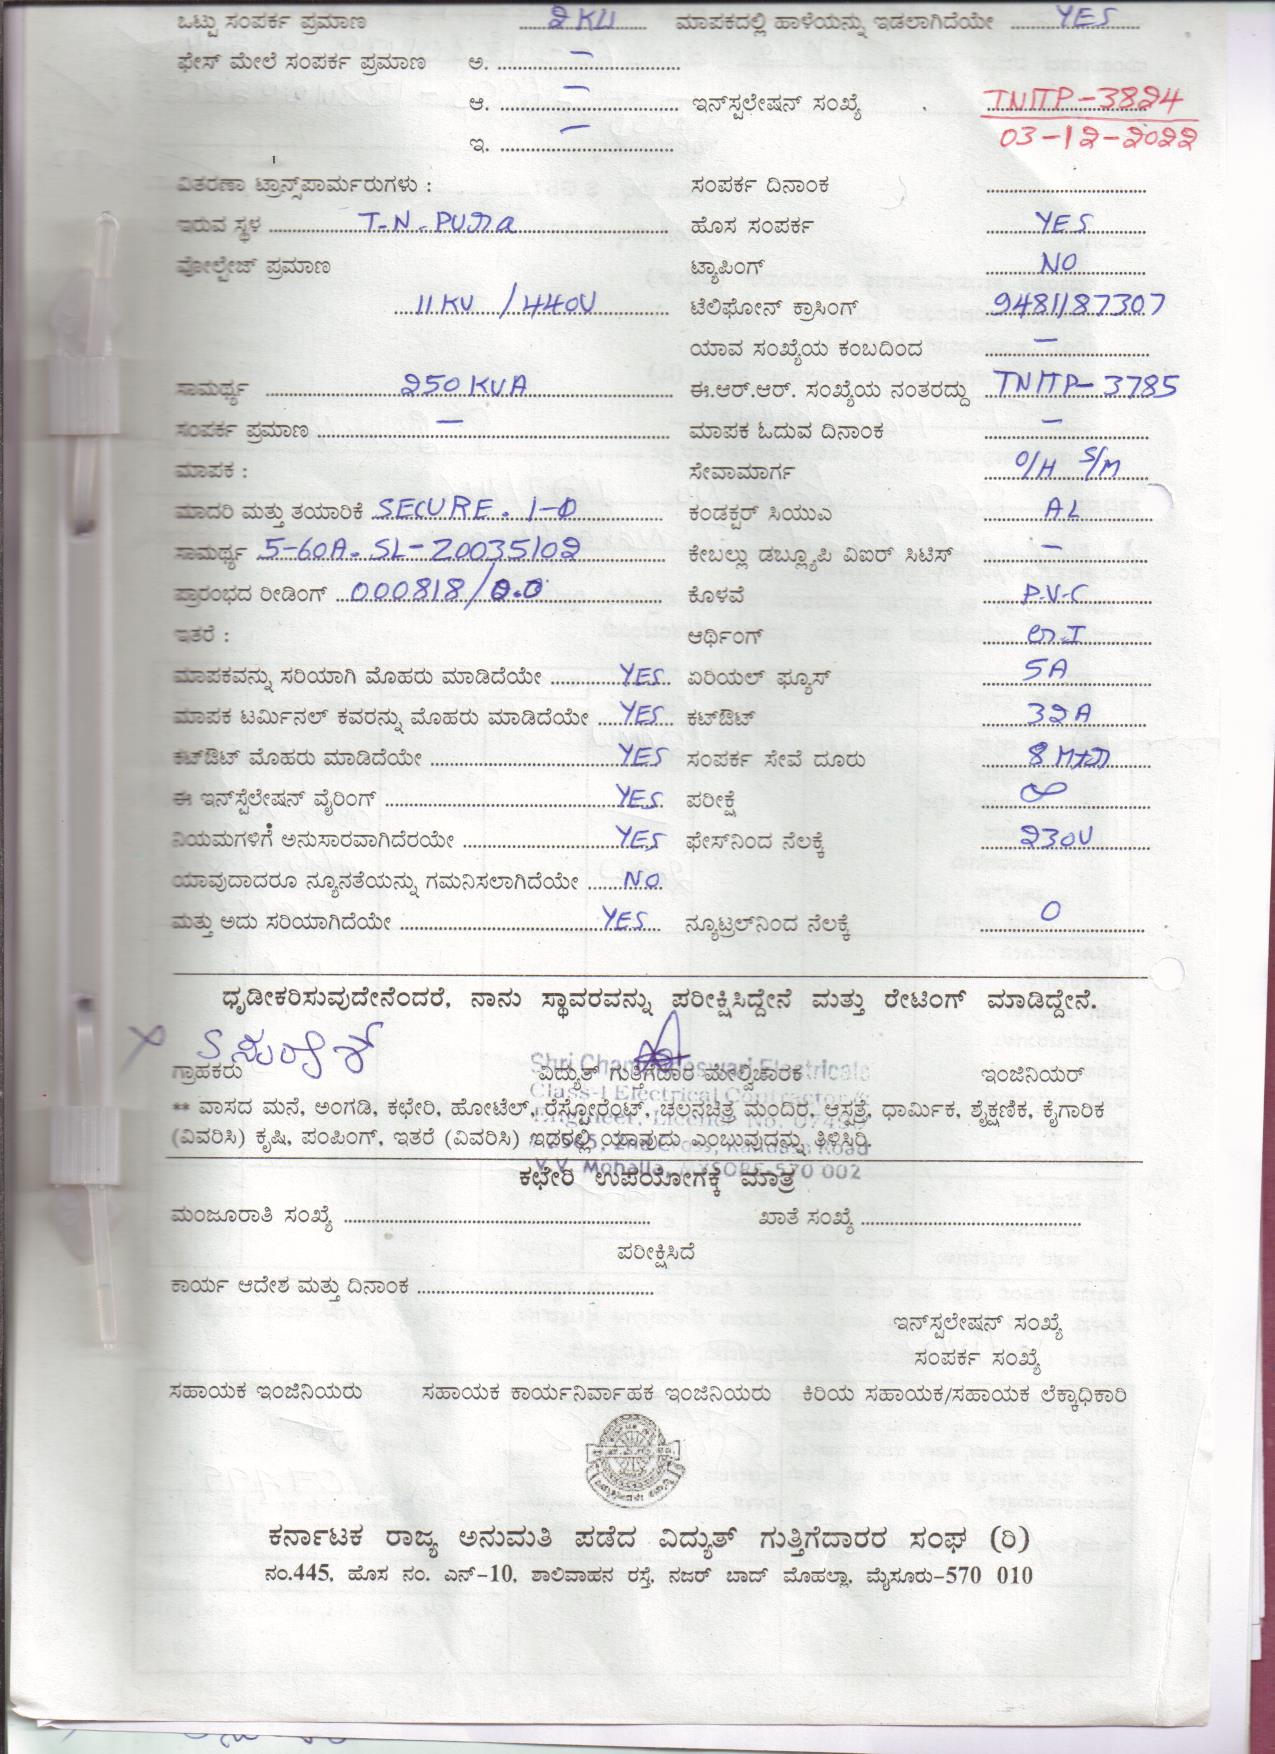 ಒಟ್ಟು ಸಂಪರ್ಕ ಪ್ರಮಾಣ 2KW ಮಾಪಕದಲ್ಲಿ ಹಾಳೆಯನ್ನು ಇಡಲಾಗಿದೆಯೇ YES
ಫೇಸ್ ಮೇಲೆ ಸಂಪರ್ಕ ಪ್ರಮಾಣ ಅ. –
ಆ. – ಇನ್‌ಸ್ಪಲೇಷನ್ ಸಂಖ್ಯೆ TNITP-3824
ಇ. – 03-12-2022
ವಿತರಣಾ ಟ್ರಾನ್ಸ್‌ಪಾರ್ಮರುಗಳು : ಸಂಪರ್ಕ ದಿನಾಂಕ
ಇರುವ ಸ್ಥಳ T.N. PURA ಹೊಸ ಸಂಪರ್ಕ YES
ವೋಲ್ಟೇಜ್ ಪ್ರಮಾಣ ಟ್ಯಾಪಿಂಗ್ NO
11KV / 440V ಟೆಲಿಫೋನ್ ಕ್ರಾಸಿಂಗ್ 9481187307
ಯಾವ ಸಂಖ್ಯೆಯ ಕಂಬದಿಂದ –
ಸಾಮರ್ಥ್ಯ 250KVA ಈ.ಆರ್.ಆರ್. ಸಂಖ್ಯೆಯ ನಂತರದ್ದು TNITP-3785
ಸಂಪರ್ಕ ಪ್ರಮಾಣ – ಮಾಪಕ ಓದುವ ದಿನಾಂಕ –
ಮಾಪಕ : ಸೇವಾಮಾರ್ಗ O/H S/M
ಮಾದರಿ ಮತ್ತು ತಯಾರಿಕೆ SECURE. 1-Φ ಕಂಡಕ್ಟರ್ ಸಿಯುಎ AL
ಸಾಮರ್ಥ್ಯ 5-60A. SL-20035102 ಕೇಬಲ್ಲು ಡಬ್ಲ್ಯೂಪಿ ವಿಐಆರ್ ಸಿಟಿಸ್ –
ಪ್ರಾರಂಭದ ರೀಡಿಂಗ್ 000818/0.0 ಕೊಳವೆ P.V.C
ಇತರೆ : ಆರ್ಥಿಂಗ್
ಮಾಪಕವನ್ನು ಸರಿಯಾಗಿ ಮೊಹರು ಮಾಡಿದೆಯೇ YES ಏರಿಯಲ್ ಫ್ಯೂಸ್ 5A
ಮಾಪಕ ಟರ್ಮಿನಲ್ ಕವರನ್ನು ಮೊಹರು ಮಾಡಿದೆಯೇ YES ಕಟ್‌ಔಟ್ 32A
ಕಟ್‌ಔಟ್ ಮೊಹರು ಮಾಡಿದೆಯೇ YES ಸಂಪರ್ಕ ಸೇವೆ ದೂರು 8
ಈ ಇನ್‌ಸ್ಟೆಲೇಷನ್ ವೈರಿಂಗ್ YES ಪರೀಕ್ಷೆ ∞
ನಿಯಮಗಳಿಗೆ ಅನುಸಾರವಾಗಿದೆರಯೇ YES ಫೇಸ್‌ನಿಂದ ನೆಲಕ್ಕೆ 230V
ಯಾವುದಾದರೂ ನ್ಯೂನತೆಯನ್ನು ಗಮನಿಸಲಾಗಿದೆಯೇ NO
ಮತ್ತು ಅದು ಸರಿಯಾಗಿದೆಯೇ YES ನ್ಯೂಟ್ರಲ್‌ನಿಂದ ನೆಲಕ್ಕೆ 0
ಧೃಡೀಕರಿಸುವುದೇನೆಂದರೆ, ನಾನು ಸ್ಥಾವರವನ್ನು ಪರೀಕ್ಷಿಸಿದ್ದೇನೆ ಮತ್ತು ರೇಟಿಂಗ್ ಮಾಡಿದ್ದೇನೆ.
Electricals
ಗ್ರಾಹಕರು ವಿದ್ಯುತ್ ಗುತ್ತಿಗೆದಾರ ಮೇಲ್ವಿಚಾರಕ ಇಂಜಿನಿಯರ್
Class-I Electrical Contractor &
** ವಾಸದ ಮನೆ, ಅಂಗಡಿ, ಕಛೇರಿ, ಹೋಟೆಲ್, ರೆಸ್ಟೋರೆಂಟ್, ಚಲನಚಿತ್ರ ಮಂದಿರ, ಆಸ್ಪತ್ರೆ, ಧಾರ್ಮಿಕ, ಶೈಕ್ಷಣಿಕ, ಕೈಗಾರಿಕ
(ವಿವರಿಸಿ) ಕೃಷಿ, ಪಂಪಿಂಗ್, ಇತರೆ (ವಿವರಿಸಿ) ಇದರಲ್ಲಿ ಯಾವುದು ಎಂಬುವುದನ್ನು ತಿಳಿಸಿರಿ.
V.V. Mohalla, MYSORE-570 002
ಕಛೇರಿ ಉಪಯೋಗಕ್ಕೆ ಮಾತ್ರ
ಮಂಜೂರಾತಿ ಸಂಖ್ಯೆ ಖಾತೆ ಸಂಖ್ಯೆ
ಪರೀಕ್ಷಿಸಿದೆ
ಕಾರ್ಯ ಆದೇಶ ಮತ್ತು ದಿನಾಂಕ
ಇನ್‌ಸ್ಪಲೇಷನ್ ಸಂಖ್ಯೆ
ಸಂಪರ್ಕ ಸಂಖ್ಯೆ
ಸಹಾಯಕ ಇಂಜಿನಿಯರು ಸಹಾಯಕ ಕಾರ್ಯನಿರ್ವಾಹಕ ಇಂಜಿನಿಯರು ಕಿರಿಯ ಸಹಾಯಕ/ಸಹಾಯಕ ಲೆಕ್ಕಾಧಿಕಾರಿ
ಕರ್ನಾಟಕ ರಾಜ್ಯ ಅನುಮತಿ ಪಡೆದ ವಿದ್ಯುತ್ ಗುತ್ತಿಗೆದಾರರ ಸಂಘ (ರಿ)
ನಂ.445, ಹೊಸ ನಂ. ಎನ್-10, ಶಾಲಿವಾಹನ ರಸ್ತೆ, ನಜರ್ ಬಾದ್ ಮೊಹಲ್ಲಾ, ಮೈಸೂರು-570 010